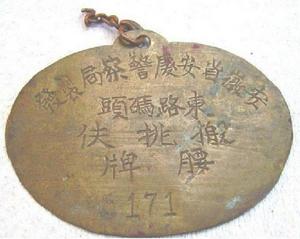 安徽省安慶警察局製發
東路碼頭
搬挑伕
腰牌
171